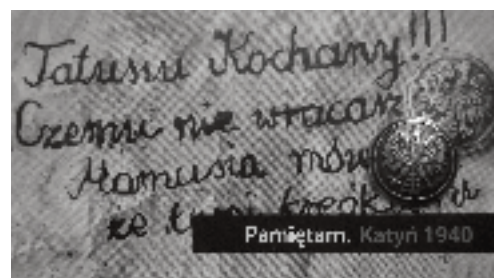 Tatusiu Kochany!!!
Czemu nie wracasz
Mamusia
że
Pamiętam. Katyń 1940